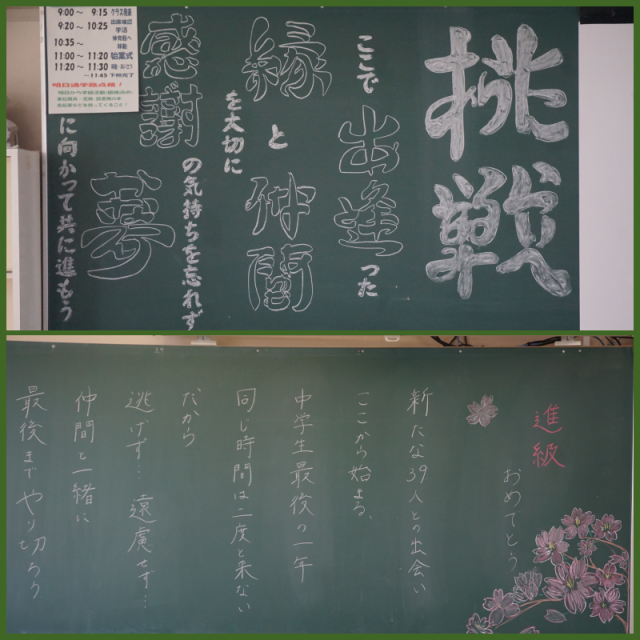 挑戦
ここで出逢った
縁と仲間
を大切に
感謝の気持ちを忘れず
夢に向かって共に進もう
9:00 ～ 9:15
9:20 ～ 10:25
学活
10:35 ～
11:00 ～ 11:20 始業式
11:20 ～ 11:30
～11:45 下校完了
進級
おめでとう
新たな39人との出会い
ここから始まる、
中学生最後の一年
同じ時間は二度と来ない
だから
逃げず… 遠慮せず…
仲間と一緒に
最後まで やり切ろう